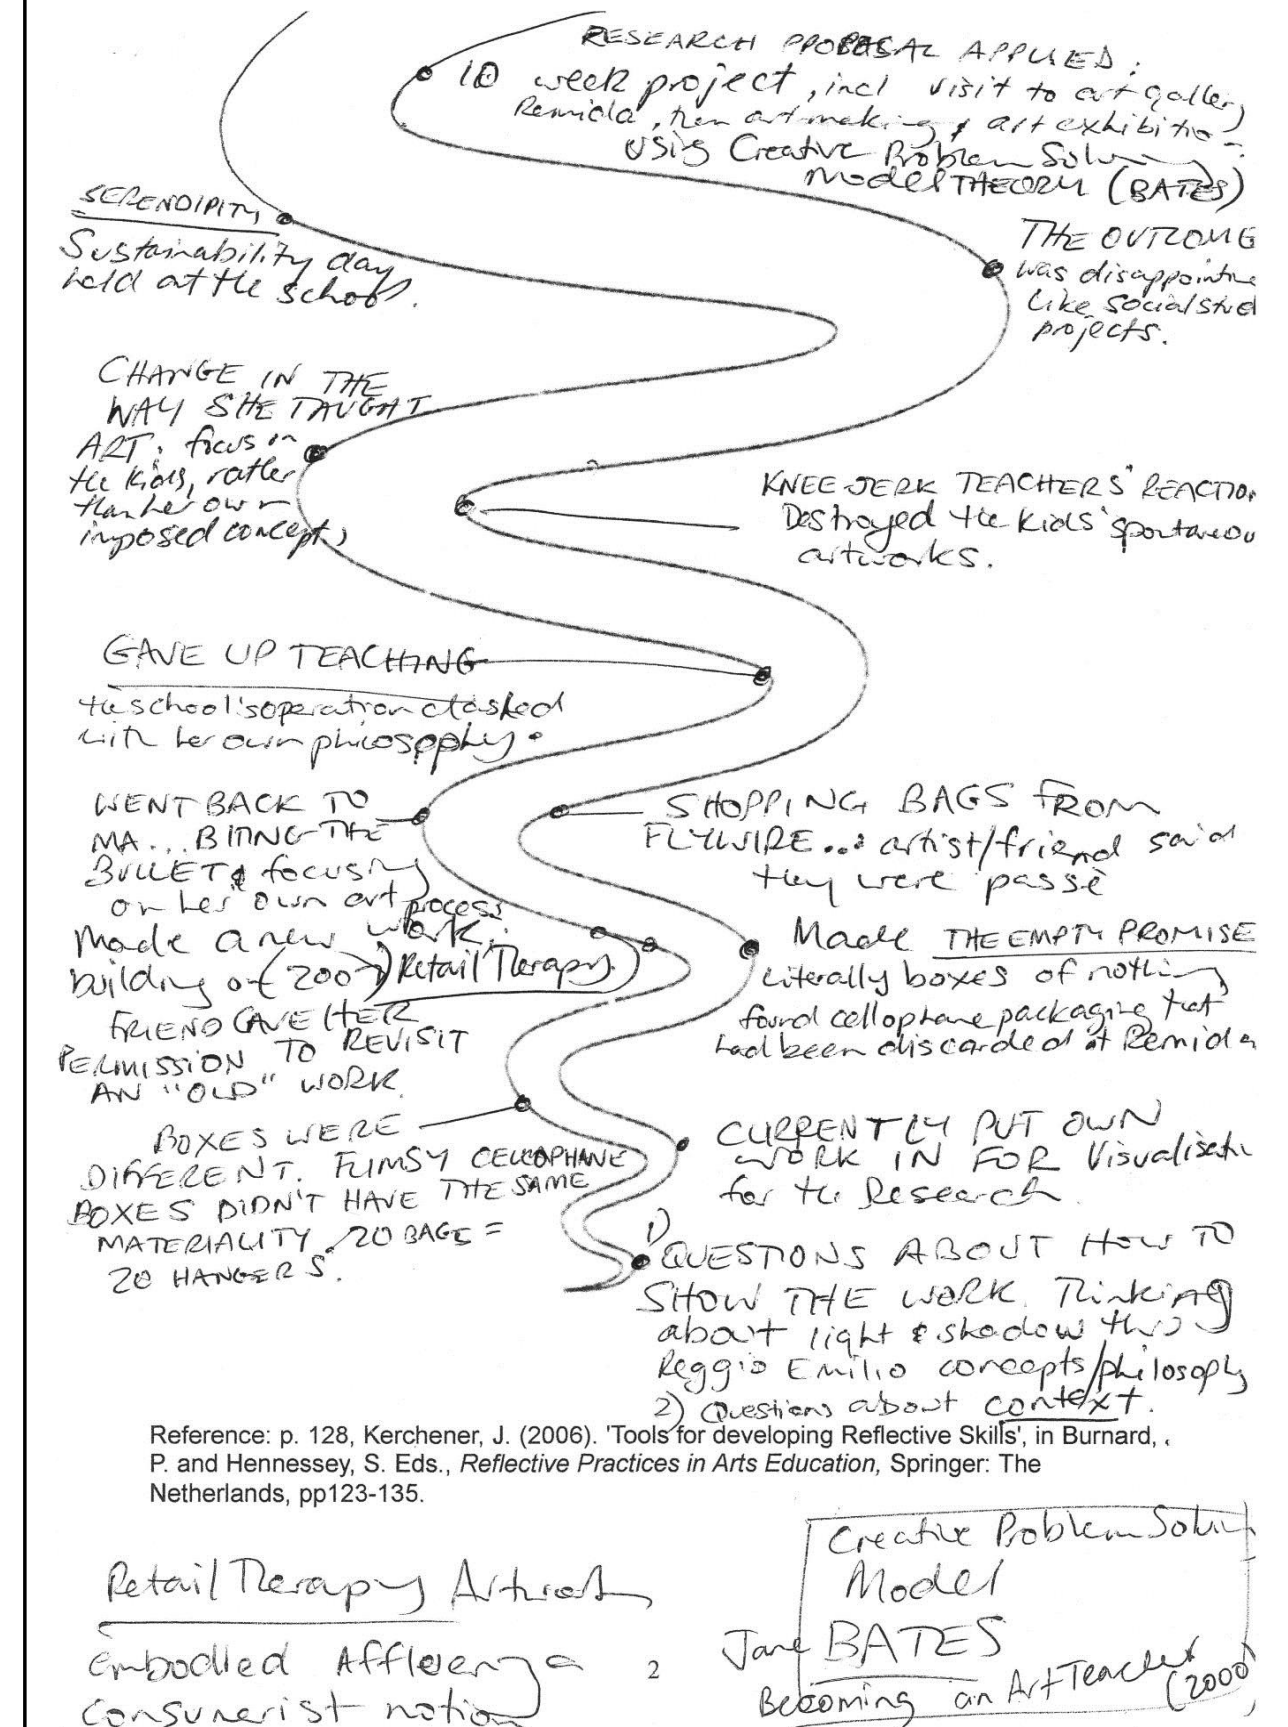 RESEARCH PROPOSAL APPLIED:
10 week project, incl visit to art gallery
Remida, then artmaking & art exhibitio
using Creative Problem Solving
Model THEORY (BATES)
SERENDIPITY
Sustainability day
held at the school.
THE OUTCOME
was disappointin
like social stud
projects.
CHANGE IN THE
WAY SHE TAUGHT
ART: focus on
the kids, rather
than her own
imposed concepts
KNEE JERK TEACHERS' REACTION
Destroyed the kids' spontaneou
artworks.
GAVE UP TEACHING
the school's operation clashed
with her own philosophy.
WENT BACK TO
MA... BITING THE
BULLET & focusing
on her own art process
Made a new work.
building on (2007) Retail Therapy.
FRIEND GAVE HER
PERMISSION TO REVISIT
AN "OLD" WORK.
SHOPPING BAGS FROM
FLYWIRE... artist/friend said
they were passé
Made THE EMPTY PROMISE
Literally boxes of nothing
found cellophane packaging that
had been discarded at Remida
BOXES WERE
DIFFERENT. FLIMSY CELLOPHANE
BOXES DIDN'T HAVE THE SAME
MATERIALITY. 20 BAGS =
20 HANGERS.
CURRENTLY PUT OWN
WORK IN FOR Visualisati
for the Research.
1) QUESTIONS ABOUT HOW TO
SHOW THE WORK. Thinking
about light & shadow thro
Reggio Emilio concepts/philosophy
2) Questions about context.
Reference: p. 128, Kerchener, J. (2006). 'Tools for developing Reflective Skills', in Burnard,
P. and Hennessey, S. Eds., Reflective Practices in Arts Education, Springer: The
Netherlands, pp123-135.
Retail Therapy Artwork
embodied Affluenza
consumerist notion
2
Creative Problem Solvin
Model
Jane BATES
Becoming an Art Teacher (2000)